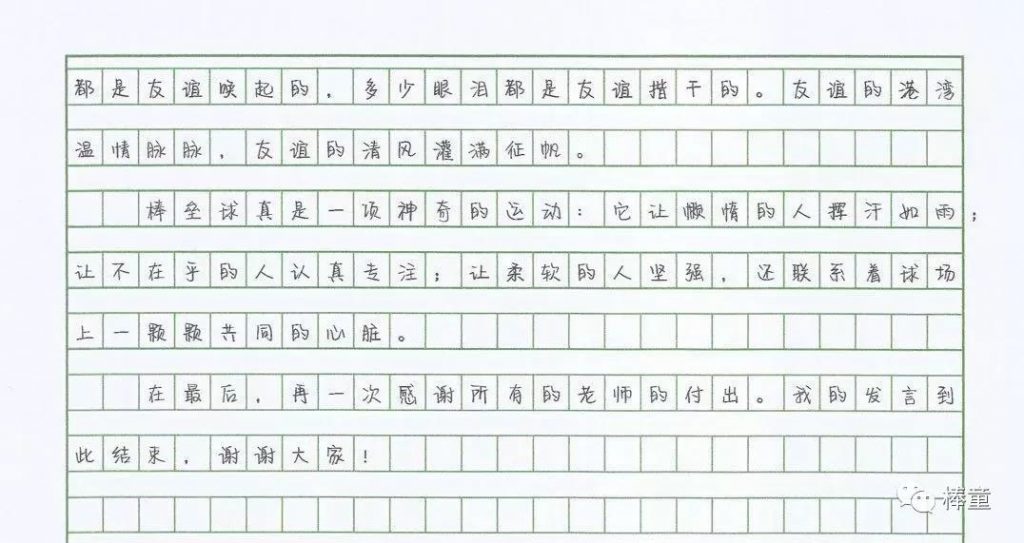 都是友谊唤起的，多少眼泪都是友谊揩干的。友谊的港湾
温情脉脉，友谊的清风灌满征帆。
棒垒球真是一项神奇的运动：它让懒惰的人挥汗如雨；
让不在乎的人认真专注；让柔软的人坚强，还联系着球场
上一颗颗共同的心脏。
在最后，再一次感谢所有的老师的付出。我的发言到
此结束，谢谢大家！
棒童